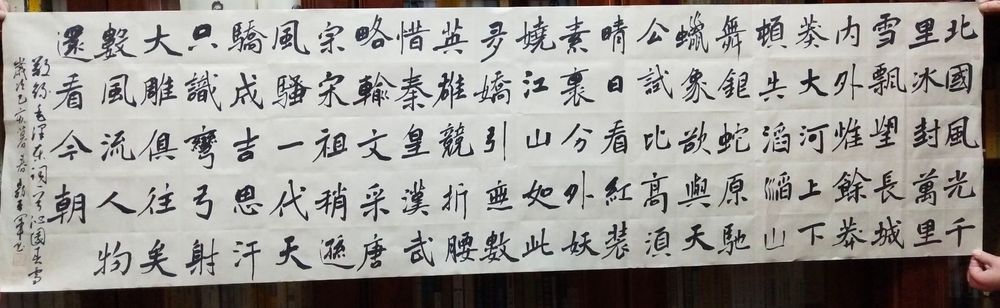 北國風光千
里冰封萬里
雪飄望長城
內外惟餘莽
莽大河上下
頓失滔滔山
舞銀蛇原馳
蠟象欲與天
公試比高須
晴日看紅裝
素裏分外妖
嬈江山如此
多嬌引無數
英雄競折腰
惜秦皇漢武
略輸文采唐
宗宋祖稍遜
風騷一代天
驕成吉思汗
只識彎弓射
大雕俱往矣
數風流人物
還看今朝
敬錄毛澤東詞一首沁園春雪
歲次己亥暮春